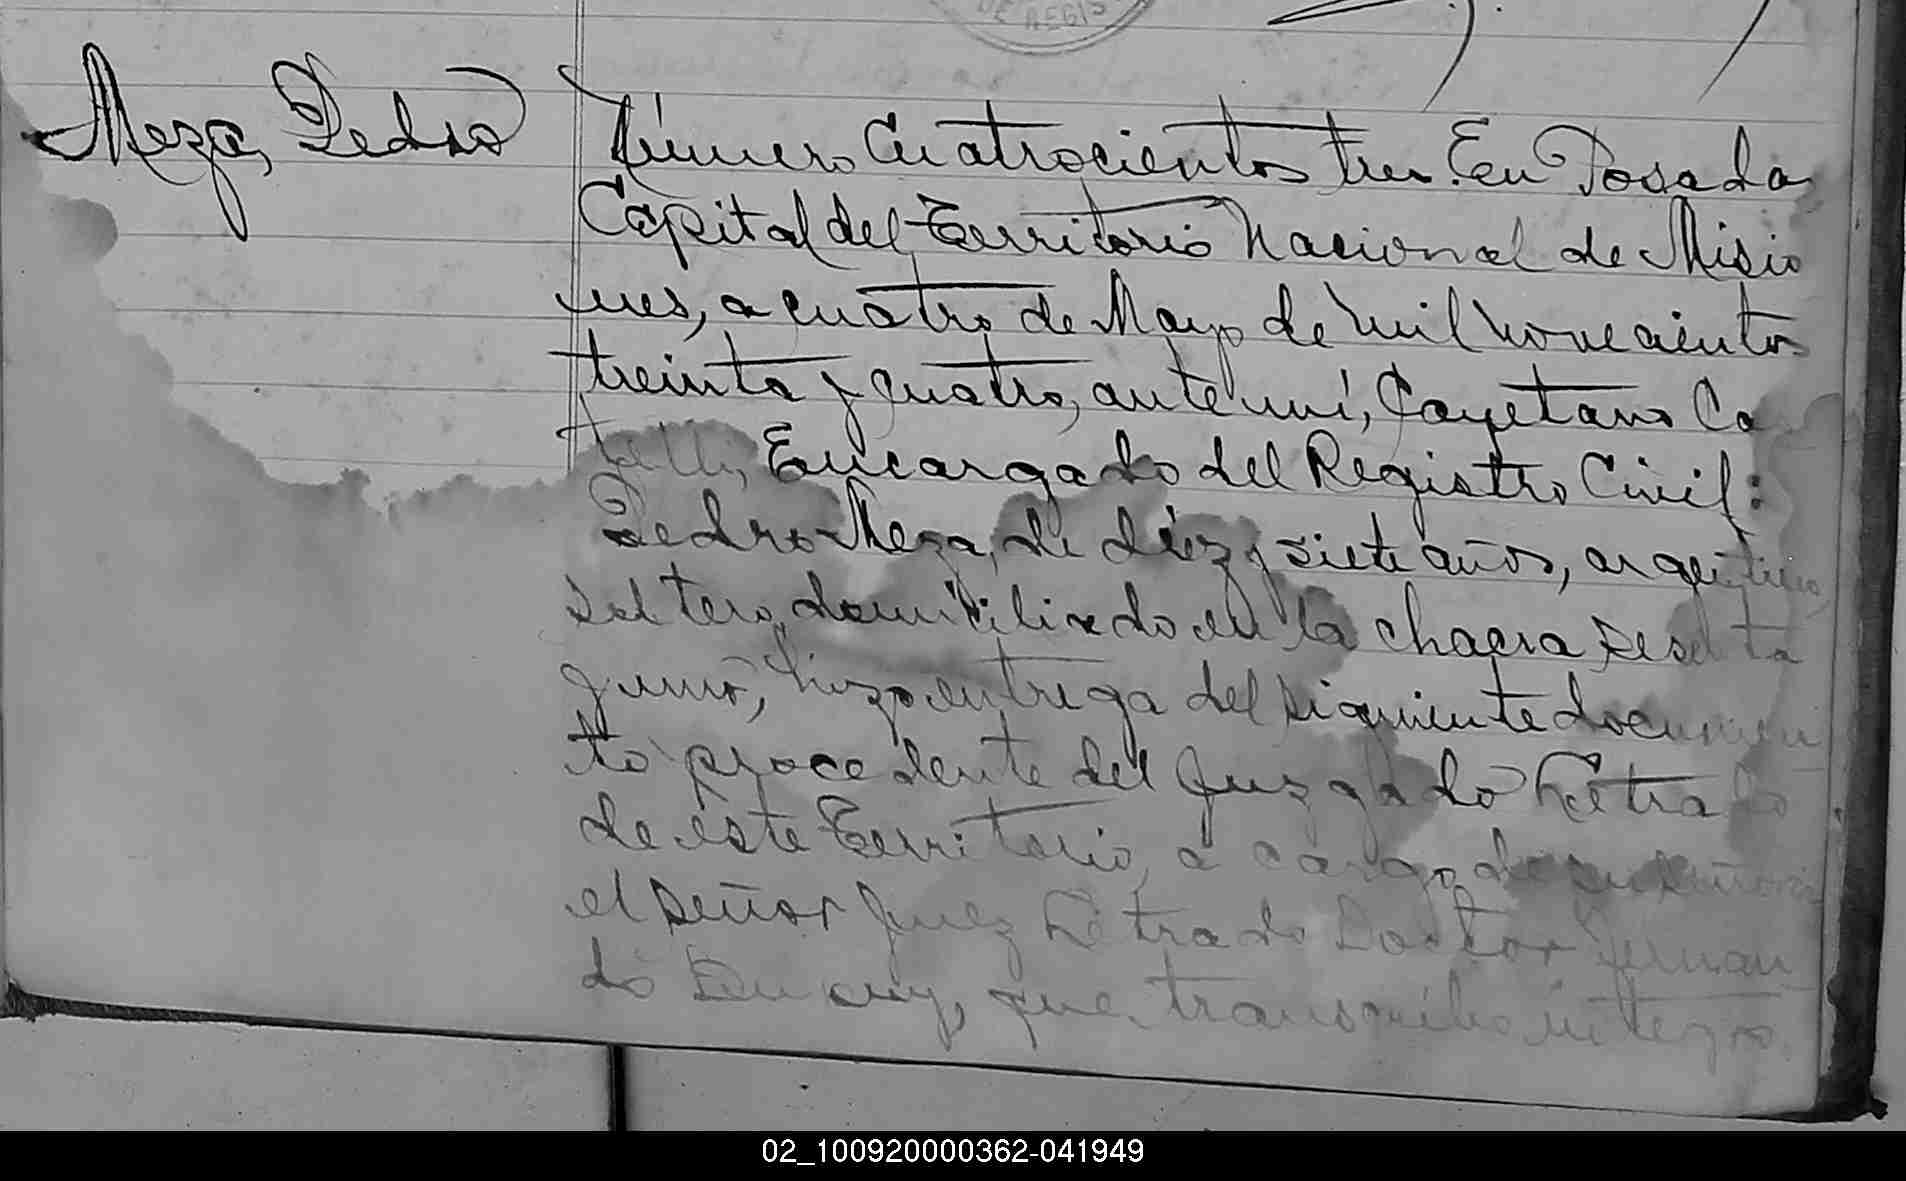 DE REGIS
Meza, Pedro
Número Cuatrocientos tres. En Posadas
Capital del Territorio Nacional de Misio
nes, a cuatro de Mayo de mil novecientos
treinta y cuatro, ante mí, Cayetano Ca
telli, Encargado del Registro Civil:
Pedro Meza, de diez y siete años, argentino,
soltero, domiciliado en la chacra sesenta
y uno, hizo entrega del siguiente documen
to procedente del Juzgado Letrado
de este Territorio, a cargo de su señoria
el señor Juez Letrado Doctor
do que transcribo integro.
02_100920000362-041949